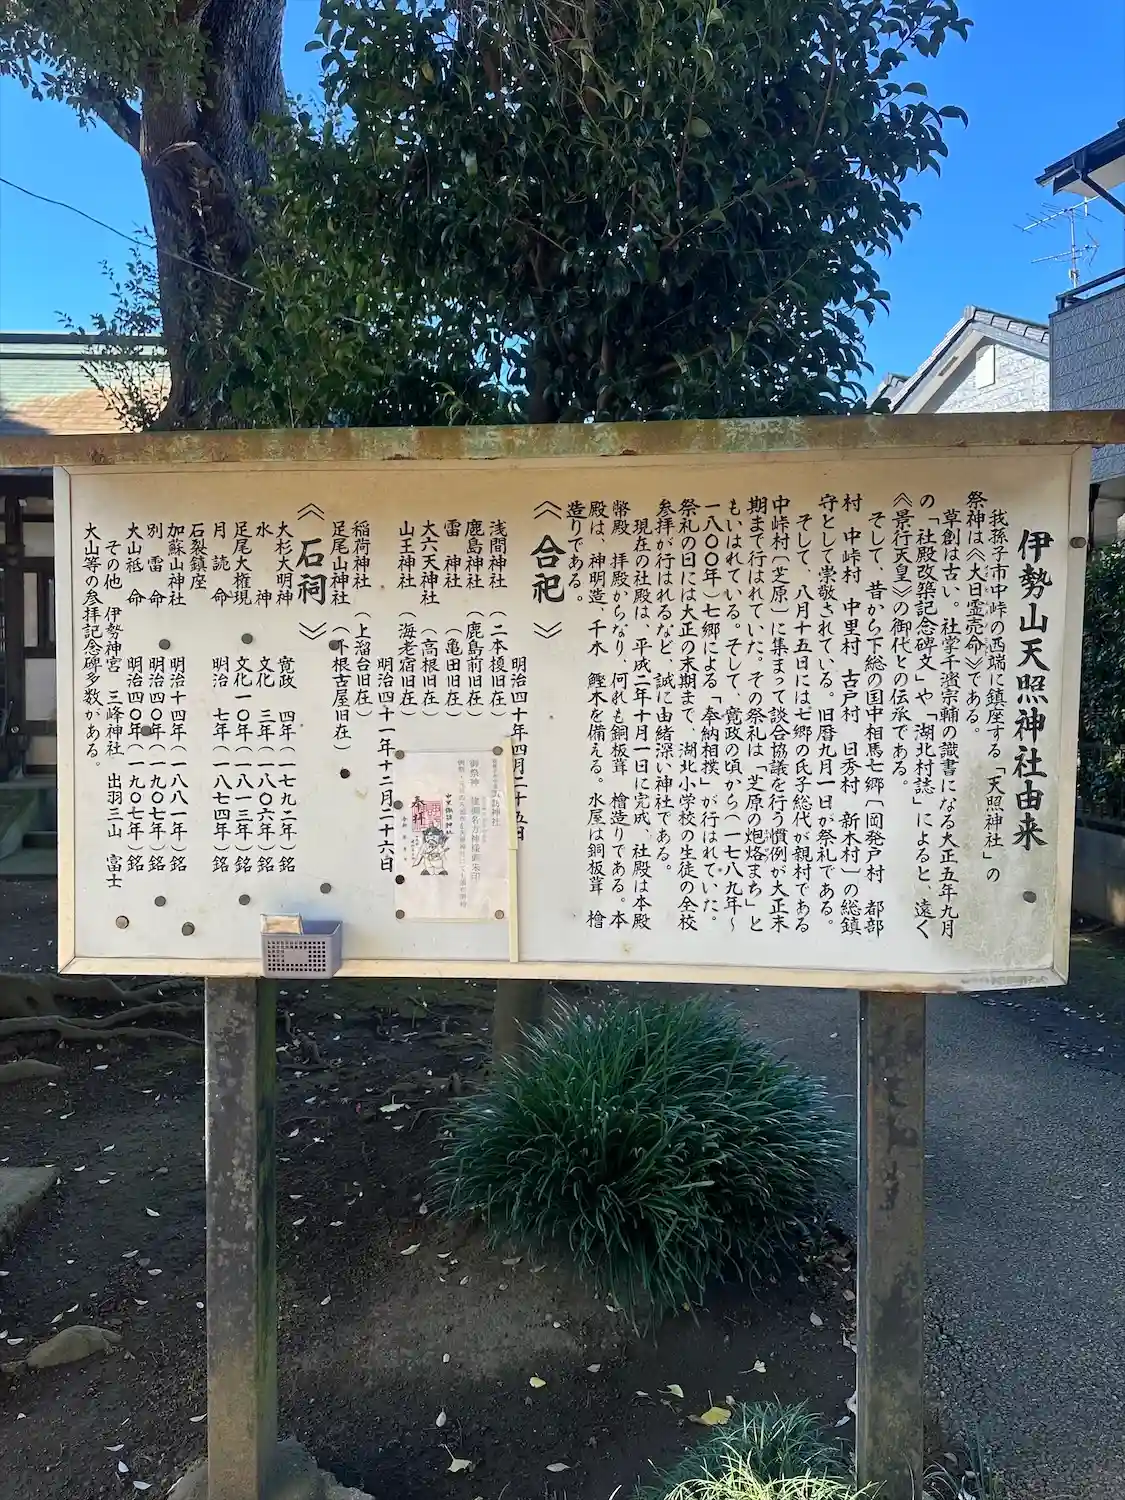 伊勢山天照神社由来
我孫子市中峠の西端に鎮座する「天照神社」の
祭神は《大日霊売命》である。
草創は古い。社掌千濱宗輔の識書になる大正五年九月
の「社殿改築記念碑文」や「湖北村誌」によると、遠く
《景行天皇》の御代との伝承である。
そして、昔から下総の国中相馬七郷〔岡発戸村 都部
村 中峠村 中里村 古戸村 日秀村 新木村〕の総鎮
守として崇敬されている。旧暦九月一日が祭礼である。
そして、八月十五日には七郷の氏子総代が親村である
中峠村〔芝原〕に集まって談合協議を行う慣例が大正末
期まで行はれていた。その祭礼は「芝原の炮烙まち」と
もいはれている。そして、寛政の頃から(一七八九年〜
一八〇〇年)七郷による「奉納相撲」が行はれていた。
祭礼の日には大正の末期まで、湖北小学校の生徒の全校
参拝が行はれるなど、誠に由緒深い神社である。
現在の社殿は、平成二年十月一日に完成、社殿は本殿
幣殿 拝殿からなり、何れも銅板葺 檜造りである。本
殿は、神明造、千木 鰹木を備える。水屋は銅板葺 檜
造りである。
《合祀》
明治四十年四月二十五日
浅間神社 (二本榎旧在)
鹿島神社 (鹿島前旧在)
雷 神社 (亀田旧在)
大六天神社 (高根旧在)
山王神社 (海老宿旧在)
明治四十一年十二月二十六日
稲荷神社 (上溜台旧在)
足尾山神社 (外根古屋旧在)
《石祠》
大杉大明神 寛政 四年(一七九二年)銘
水 神 文化 三年(一八〇六年)銘
足尾大権現 文化一〇年(一八一三年)銘
月読命 明治 七年(一八七四年)銘
石裂鎮座
加蘇山神社 明治十四年(一八八一年)銘
別雷命 明治四〇年(一九〇七年)銘
大山祗命 明治四〇年(一九〇七年)銘
その他 伊勢神宮 三峰神社 出羽三山 富士
大山等の参拝記念碑多数がある。
諏訪神社
御祭神 建御名方神様御朱印
中里諏訪神社
奉拝